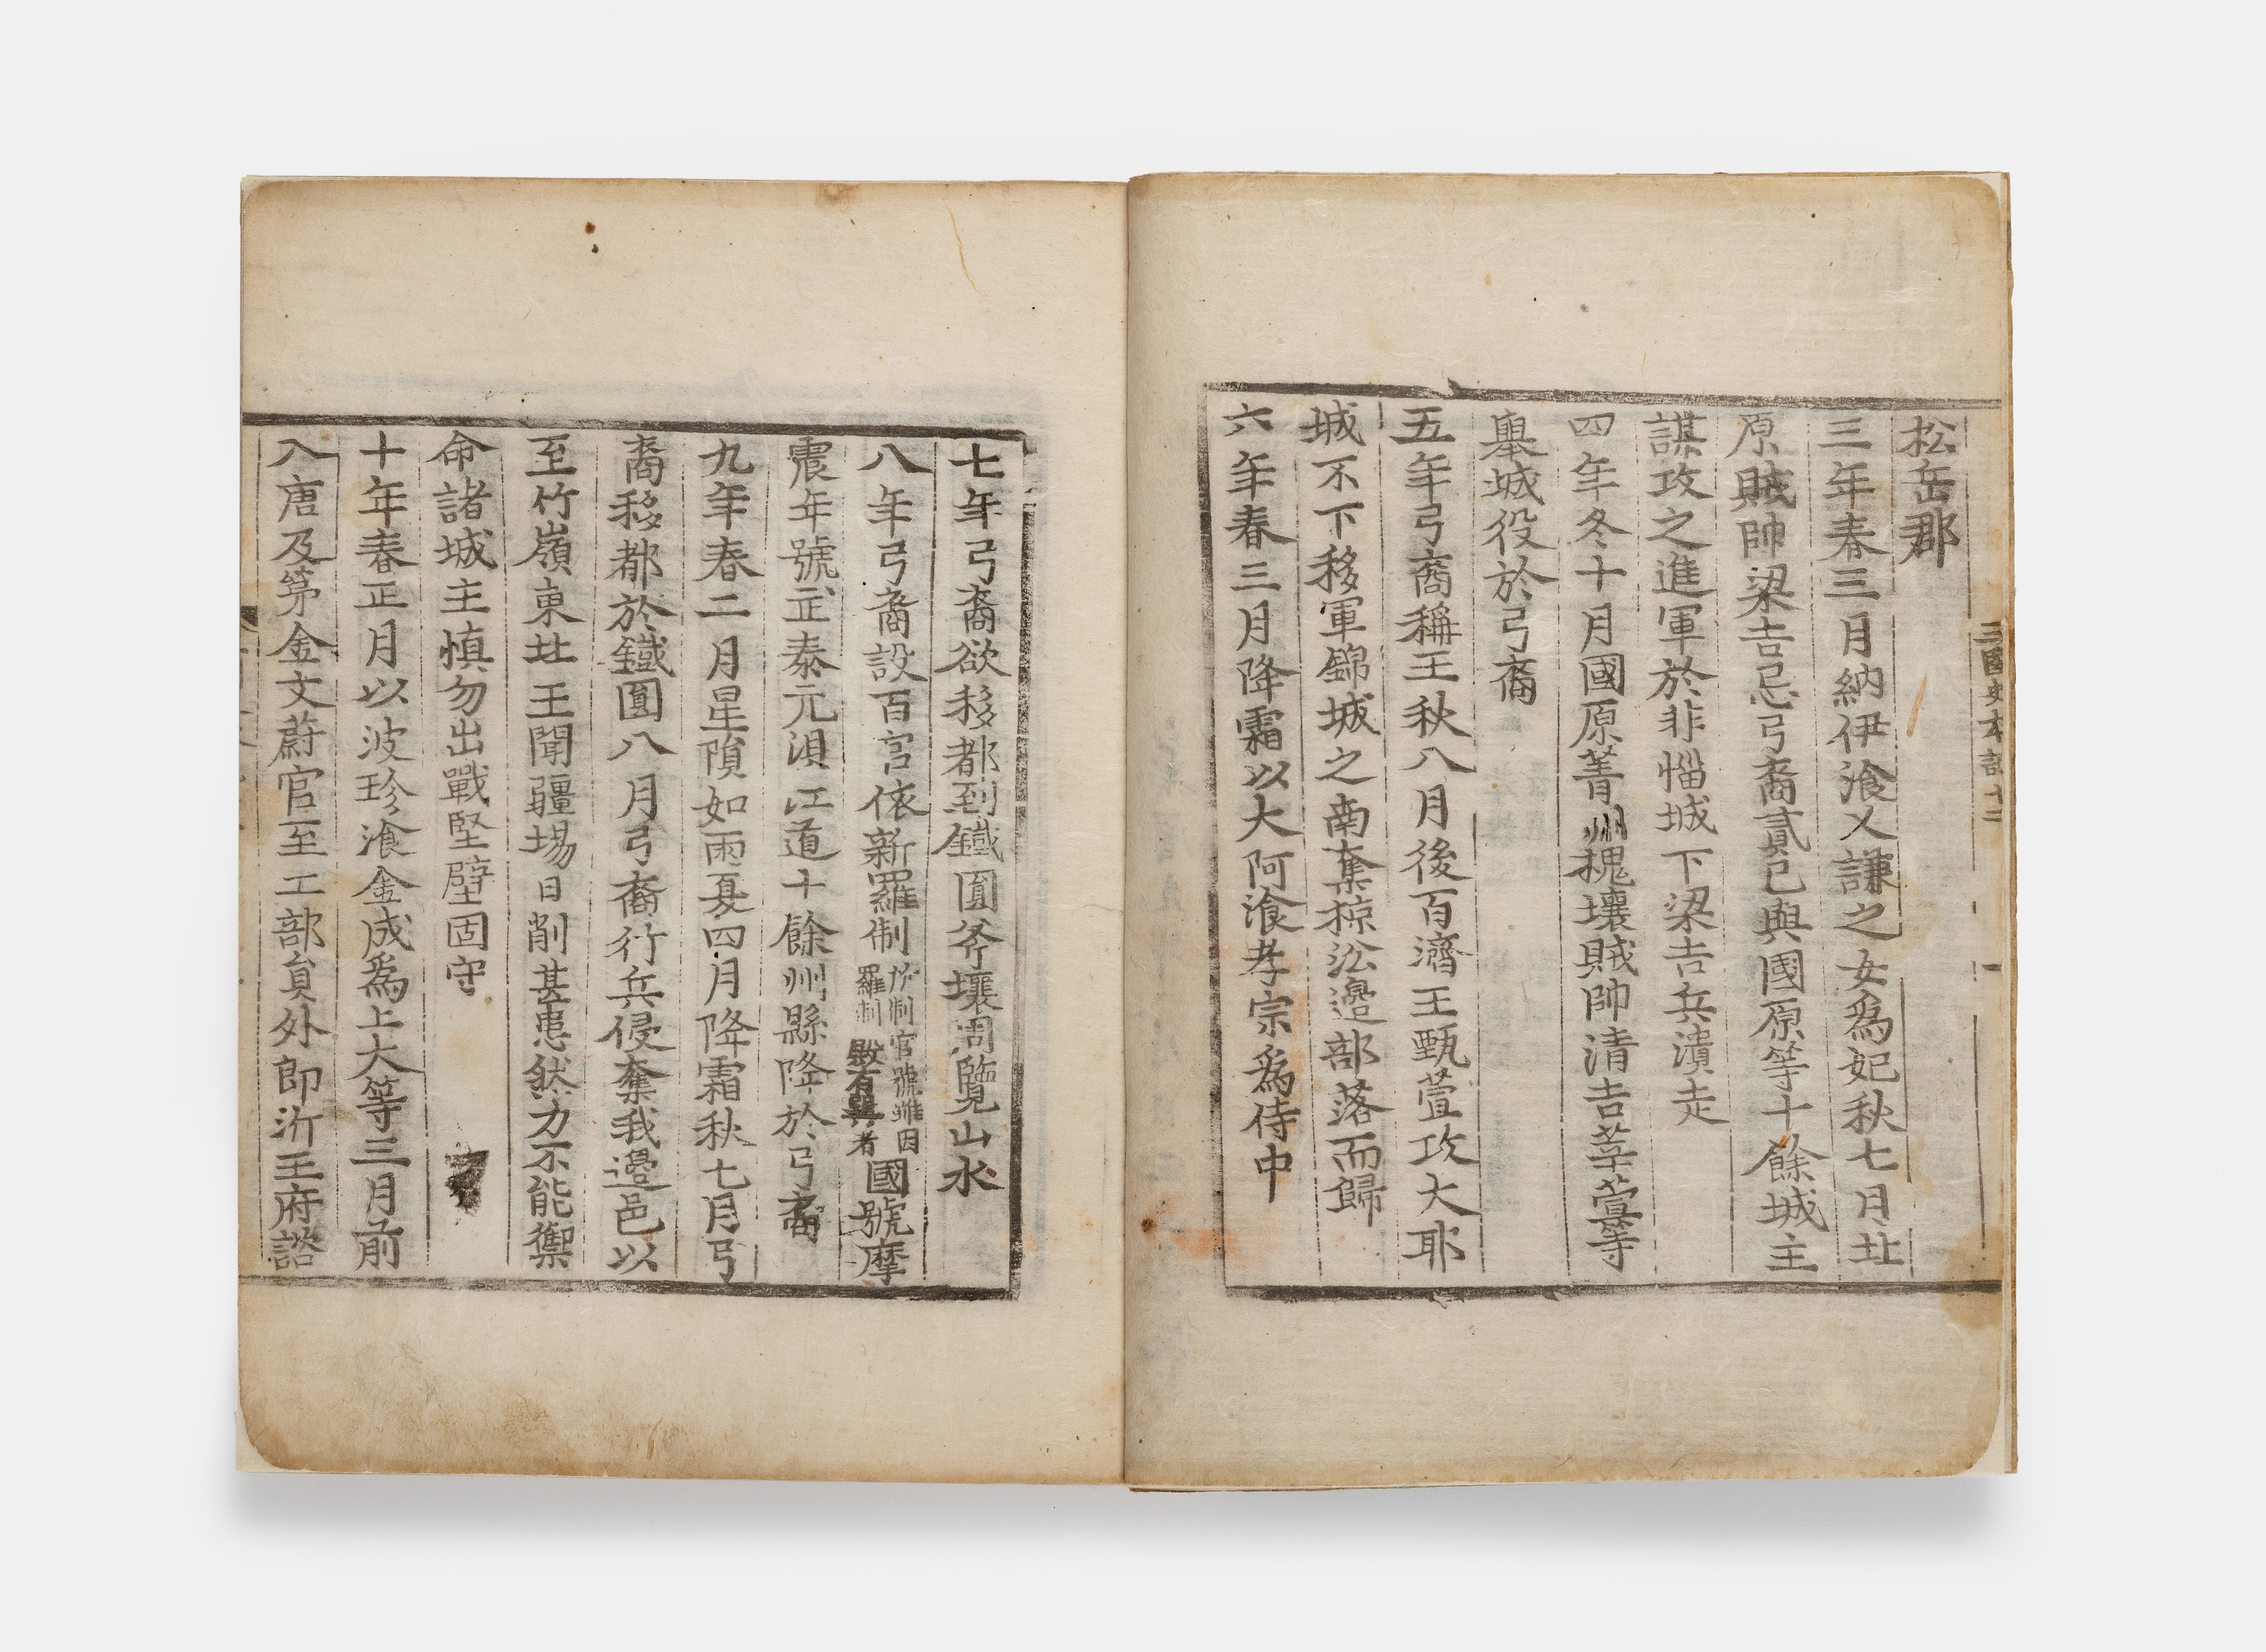 三國史本記十二
松岳郡
三年春三月納伊湌乂謙之女爲妃秋七月北
原賊帥梁吉忌弓裔貳己與國原等十餘城主
謀攻之進軍於非惱城下梁吉兵潰走
四年冬十月國原菁州槐壤賊帥清吉莘萱等
擧城役於弓裔
五年弓裔稱王秋八月後百濟王甄萱攻大耶
城不下移軍錦城之南奪掠沿邊部落而歸
六年春三月降霜以大阿湌孝宗爲侍中
七年弓裔欲移都到鐵圓斧壤周覽山水
八年弓裔設百官依新羅制
所制官號雖因
羅制
殿有異者
國號摩
震年號正泰元浿江道十餘州縣降於弓裔
九年春二月星隕如雨夏四月降霜秋七月弓
裔移都於鐵圓八月弓裔行兵侵奪我邊邑以
至竹嶺東北王聞疆埸日削甚患然力不能禦
命諸城主愼勿出戰堅壁固守
十年春正月以波珍湌金成爲上大等三月前
入唐及第金文蔚官至工部員外郎沂王府諮